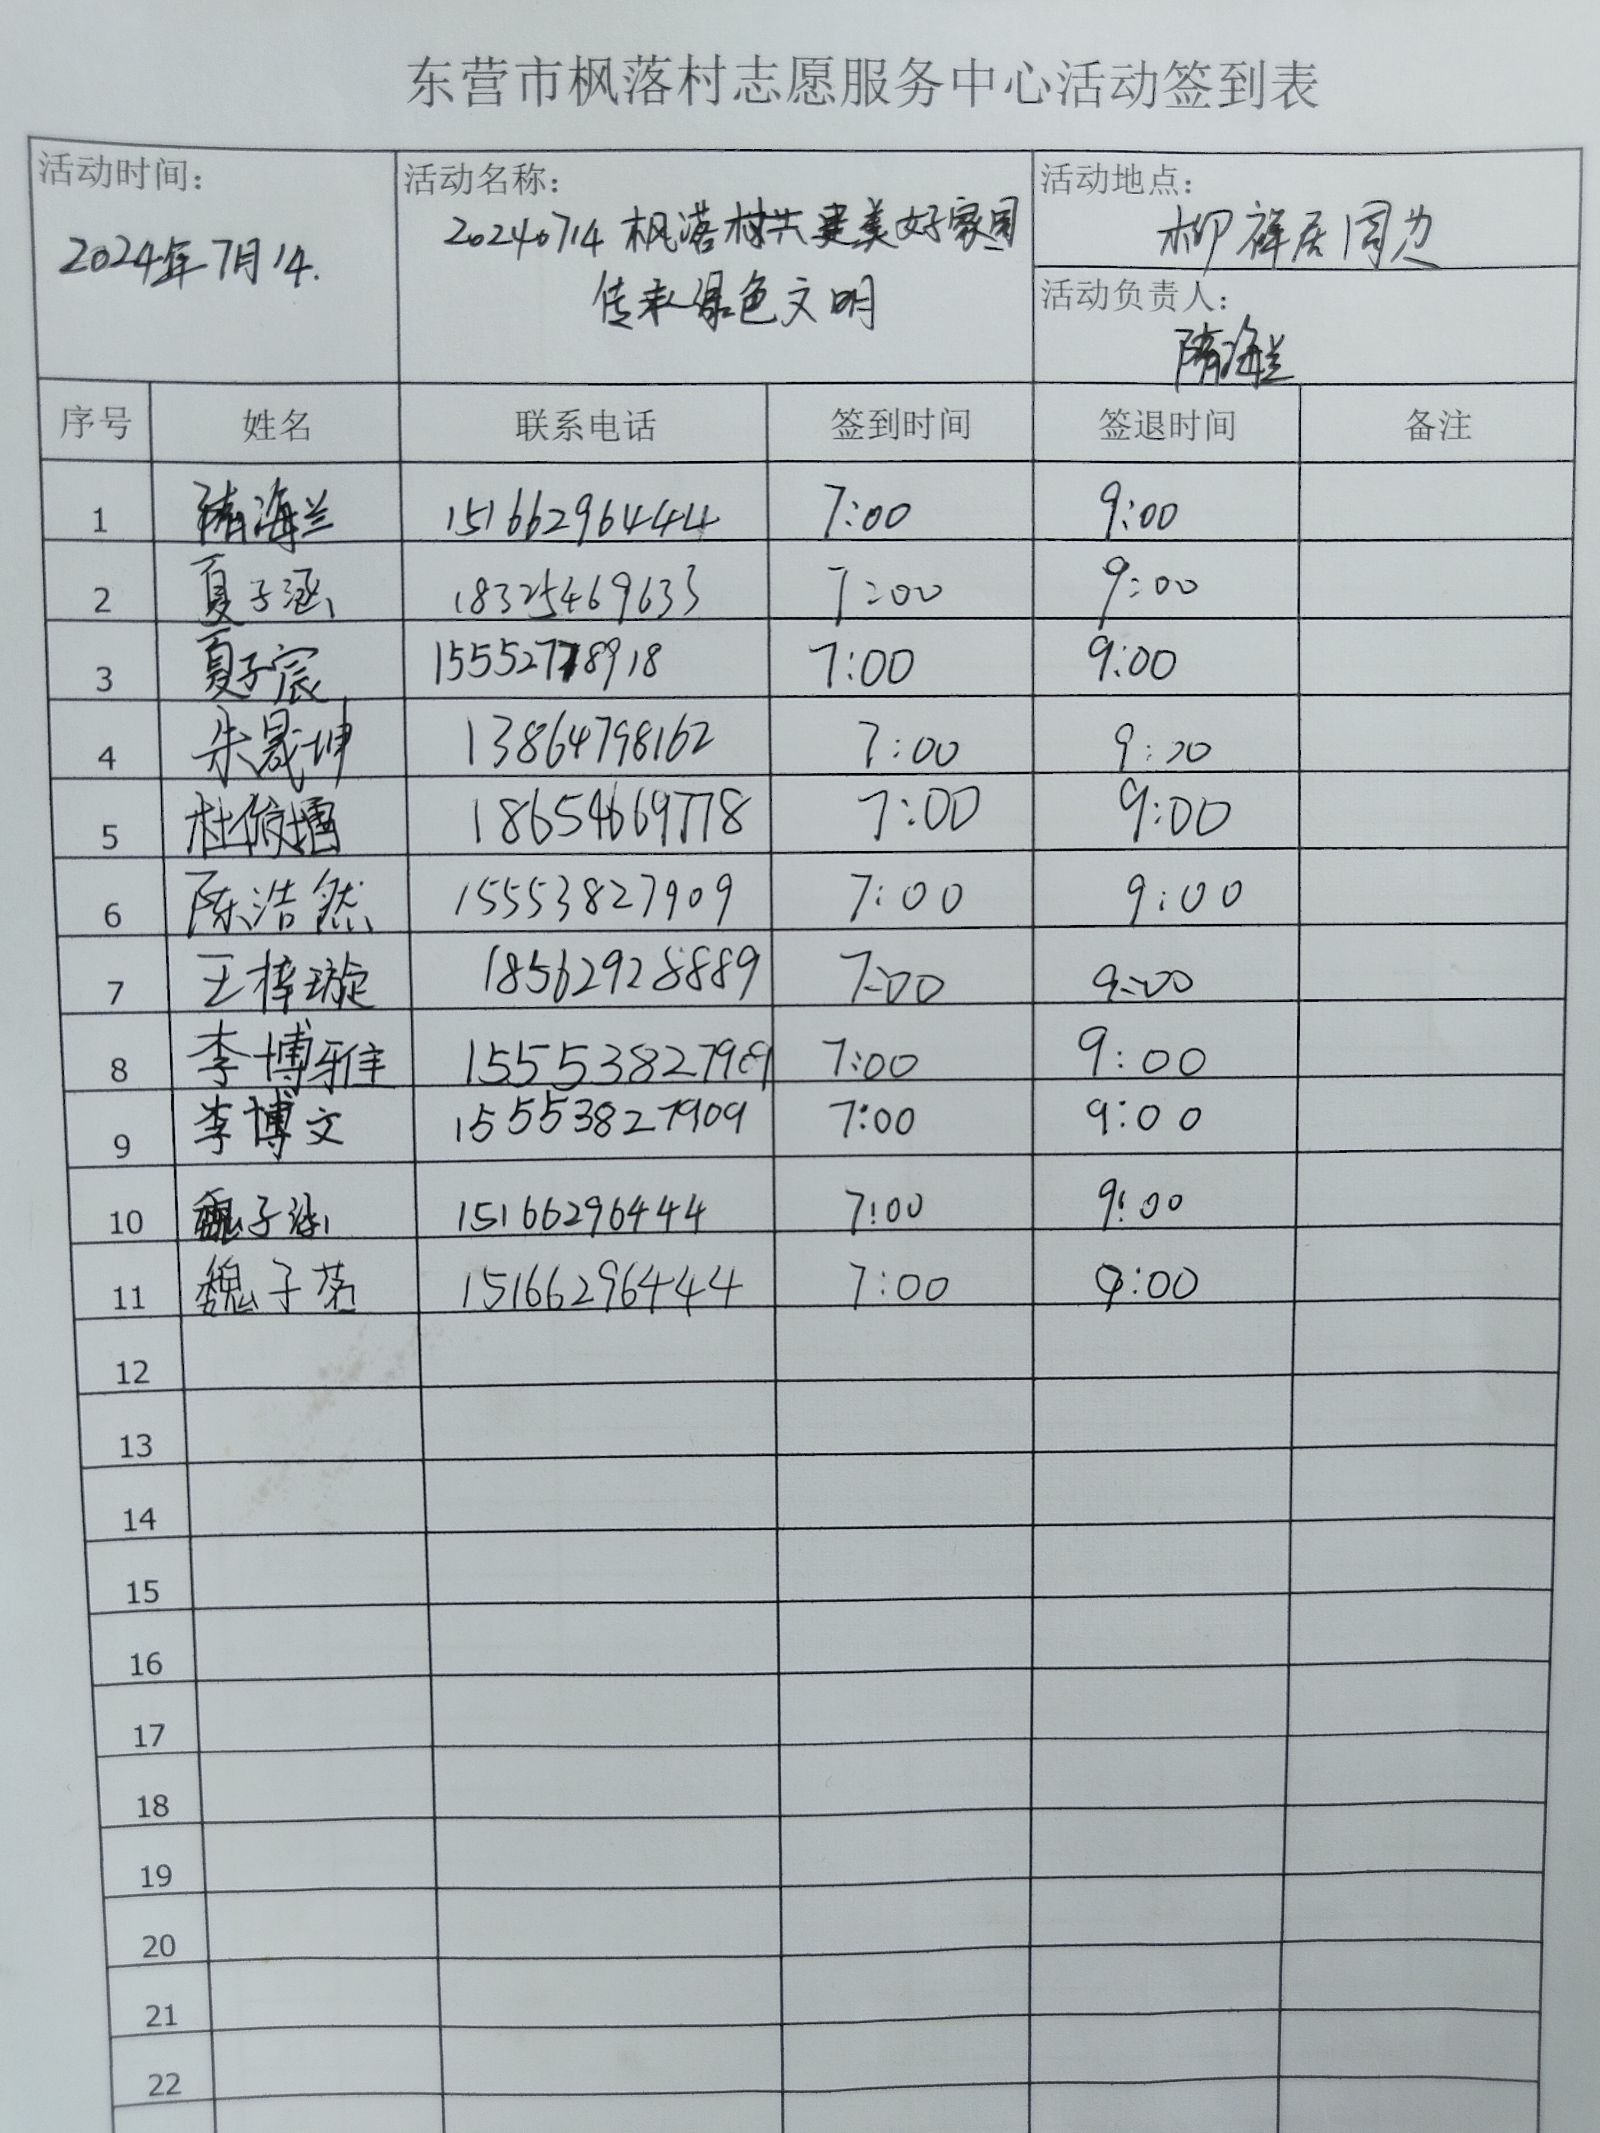 东营市枫落村志愿服务中心活动签到表
活动时间: 活动名称: 活动地点:
2024年7月14. 20240714枫落村共建美好家园 柳祥居周边
传承绿色文明
活动负责人:
隋海兰
序号 姓名 联系电话 签到时间 签退时间 备注
1 隋海兰 15166296444 7:00 9:00
2 夏子涵 18325469633 7:00 9:00
3 夏子宸 15552778918 7:00 9:00
4 朱晟坤 13864798162 7:00 9:00
5 杜俊 18654669778 7:00 9:00
6 陈浩然 15553827909 7:00 9:00
7 王梓璇 18562928889 7:00 9:00
8 李博雅 15553827909 7:00 9:00
9 李博文 15553827909 7:00 9:00
10 魏子涵 15166296444 7:00 9:00
11 魏子茗 15166296444 7:00 9:00
12
13
14
15
16
17
18
19
20
21
22